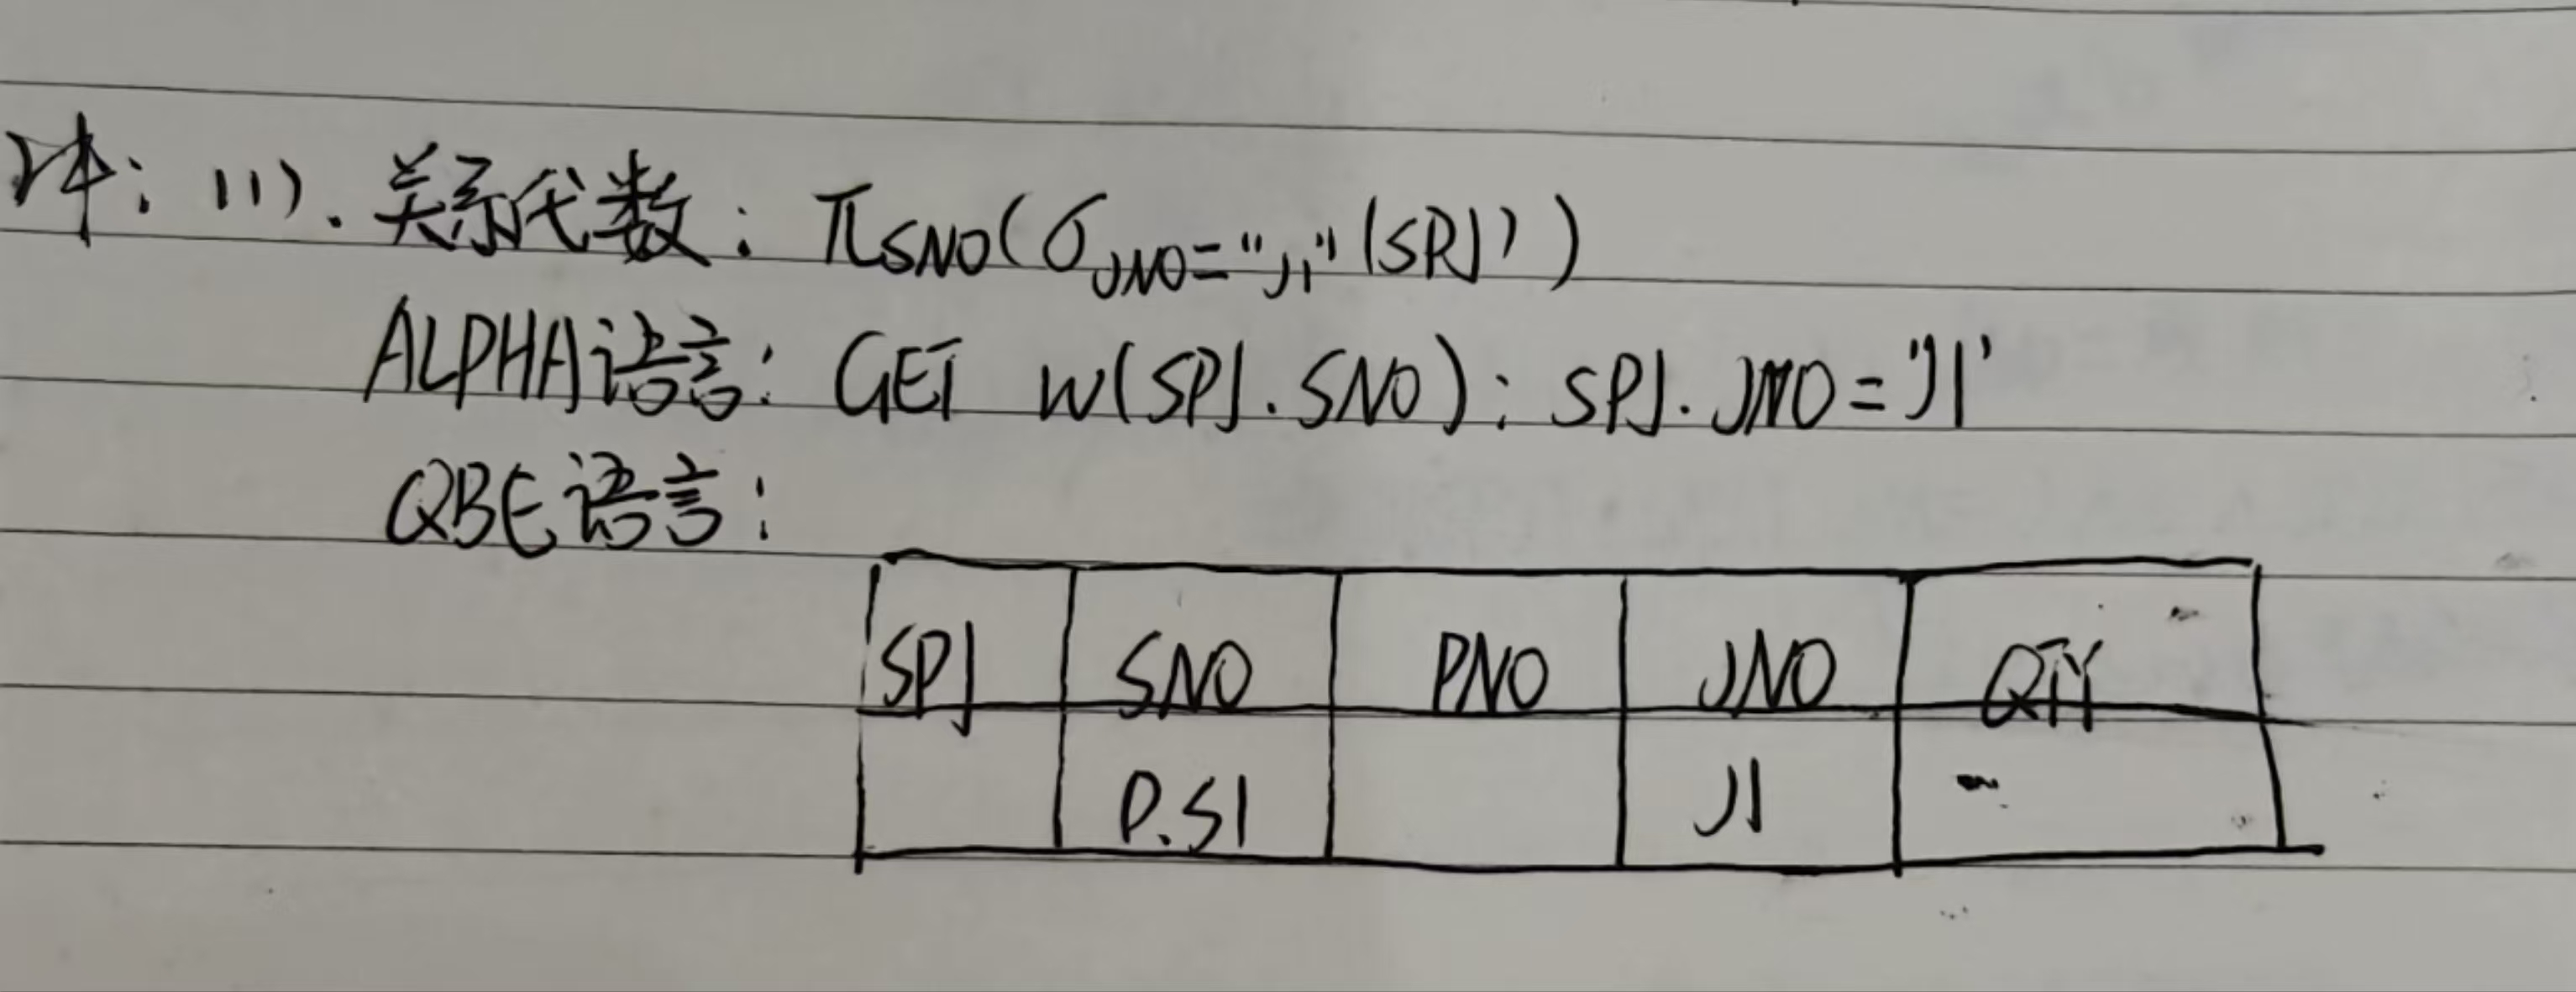 详：(1). 关系代数：πSNO(σJNO="J1"(SPJ))
ALPHA语言：GET W(SPJ.SNO)：SPJ.JNO='J1'
QBE语言：
SPJ SNO PNO JNO QTY
P.S1 J1